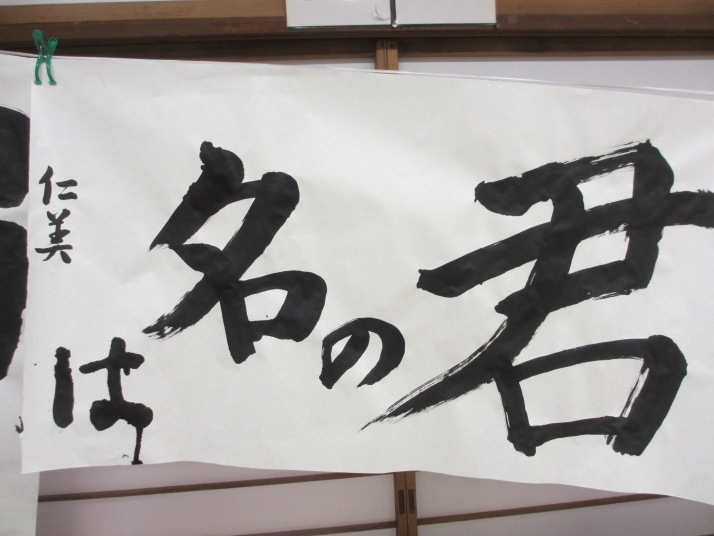 君の名は
仁美